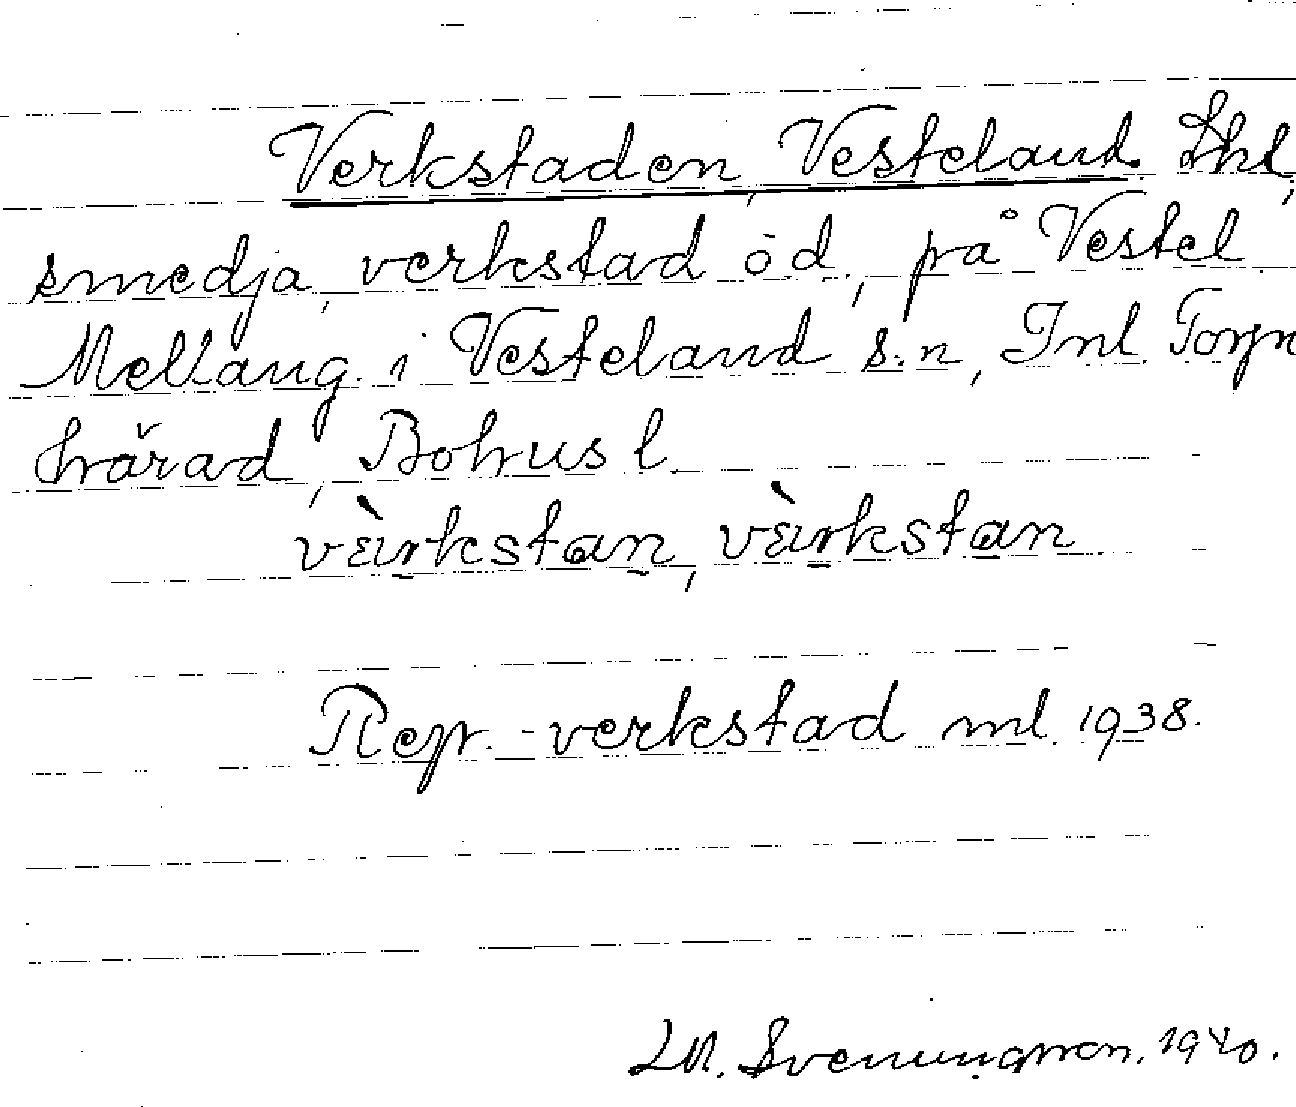 Verkstaden, Vesteland. Lhl,
smedja, verkstad o.d., på Vestel
Mellang. i Vesteland s:n, Inl. Torpe
härad, Bohusl.
vèrkstan, vèrkstan
Rep.-verkstad ml. 1938.
Svenungsson. 1940.